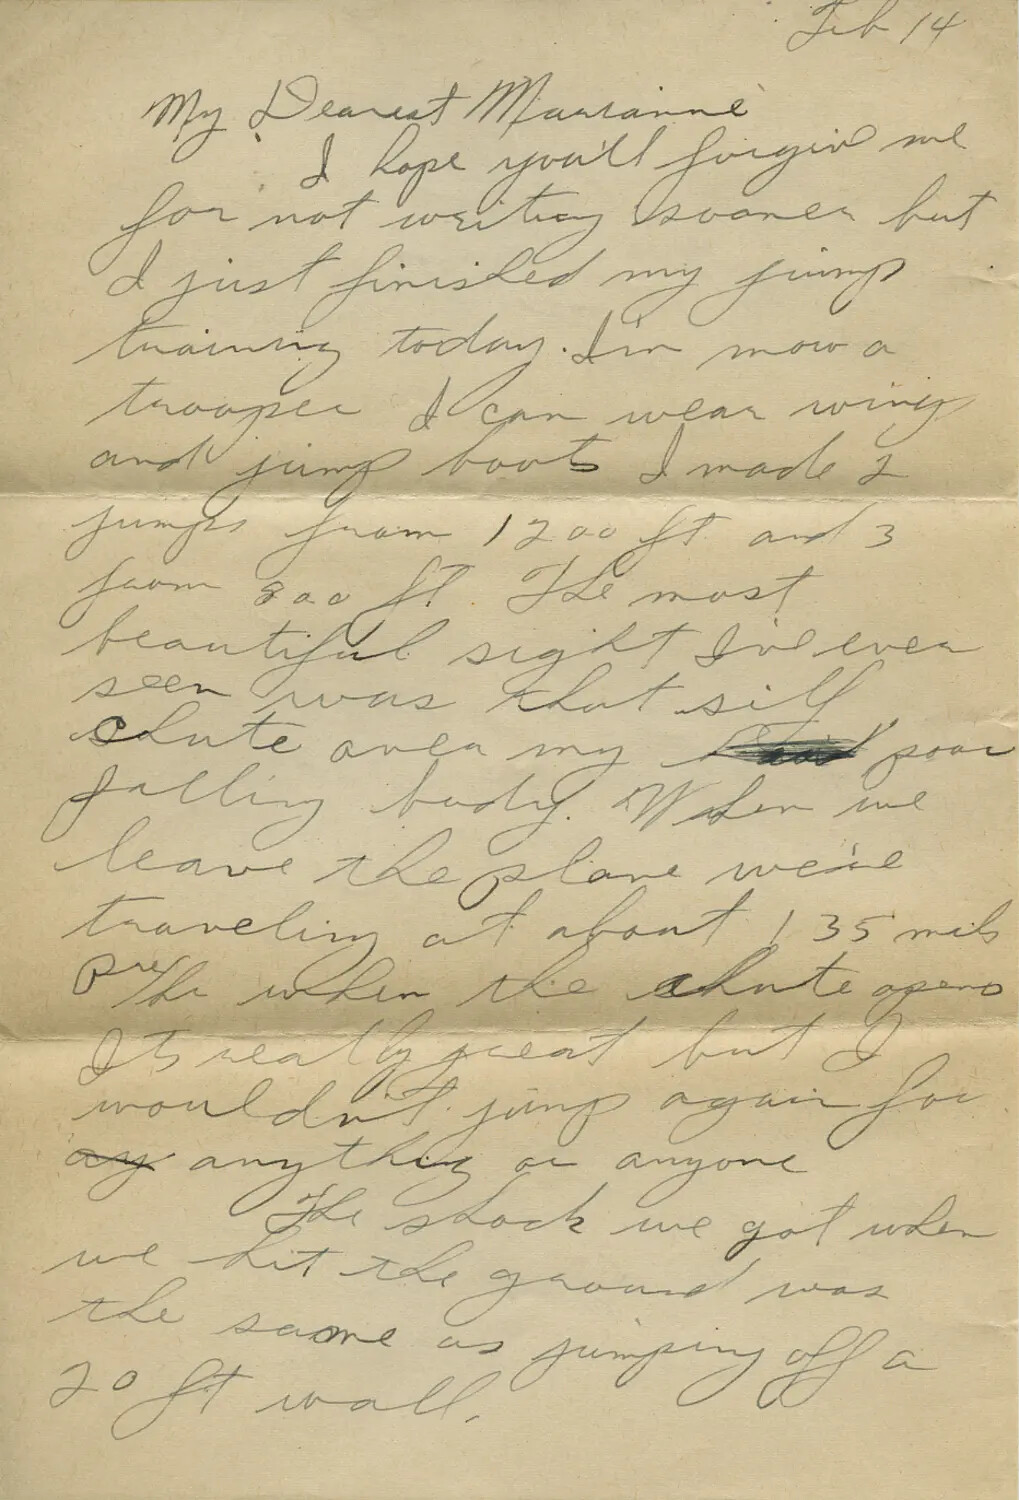 Feb 14
My Dearest Marianne
I hope you'll forgive me
for not writing sooner but
I just finished my jump
training today. I'm now a
trooper I can wear wings
and jump boots I made 2
jumps from 1200 ft and 3
from 800 ft. The most
beautiful sight I've ever
seen was that silk
chute over my poor
falling body. When we
leave the plane we're
traveling at about 135 mils
per hr when the chute opens
Its really great but I
wouldn't jump again for
ay anything or anyone
The shock we got when
we hit the ground was
the same as jumping off a
20 ft wall.